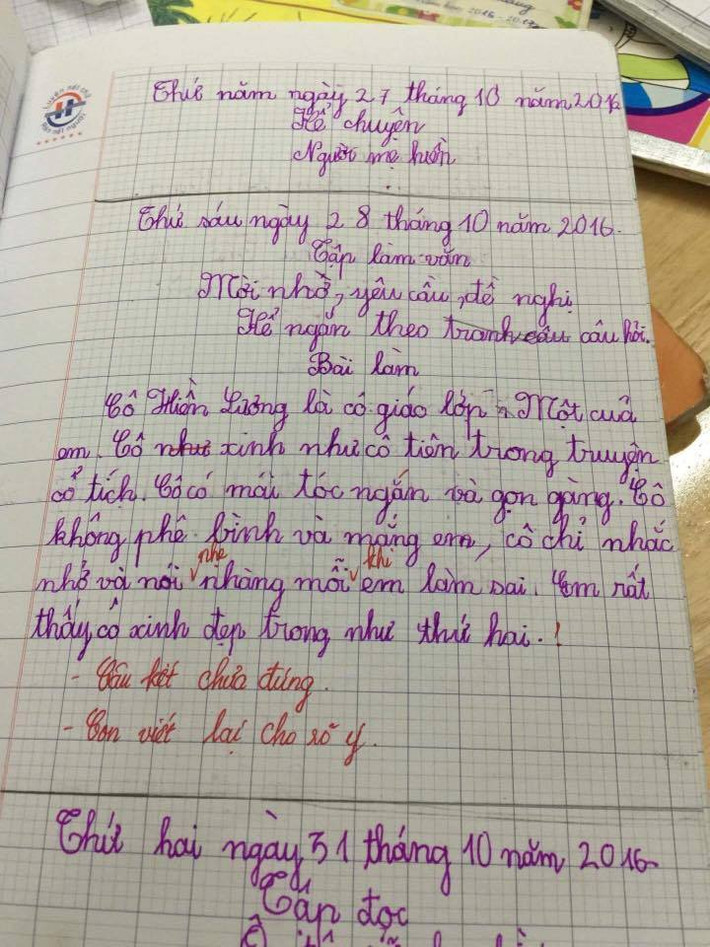 2016 - 2017
Luyện nét chữ
Rèn nết người
Thứ năm ngày 27 tháng 10 năm 2016
Kể chuyện
Người mẹ hiền
Thứ sáu ngày 28 tháng 10 năm 2016.
Tập làm văn
Mời nhờ, yêu cầu, đề nghị
Kể ngắn theo tranh câu câu hỏi.
Bài làm
Cô Hiền Lương là cô giáo lớp Một cuả
em. Cô như xinh như cô tiên trong truyện
cổ tích. Cô có mái tóc ngắn và gọn gàng. Cô
không phê bình và mắng em, cô chỉ nhắc
nhẹ khi
nhở và nói nhàng mỗi em làm sai. Em rất
thấy cô xinh đẹp trong như thứ hai.!
- Câu kết chưa đúng.
- Con viết lại cho rõ ý.
Thứ hai ngày 31 tháng 10 năm 2016
Tập đọc